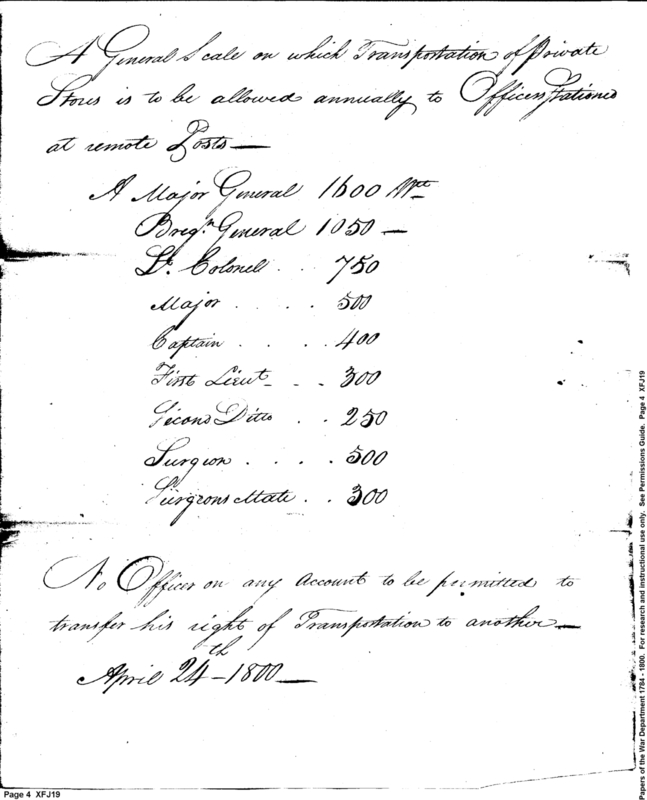 A General Scale on which Transportation of Private
Stores is to be allowed annually to Officers Stationed
at remote Posts —
A Major General 1600 Wt —
Brigr. General 1050 —
Lt. Colonell . . 750
Major . . . . 500
Captain . . . . 400
First Lieut - . . 300
Second Ditto . . 250
Surgeon . . . . 500
Surgeons Mate . . 300
No Officer on any account to be permitted to
transfer his right of Transportation to another —
April 24th - 1800 —
Page 4 XFJ19
Papers of the War Department 1784 - 1800. For research and instructional use only. See Permissions Guide. Page 4 XFJ19